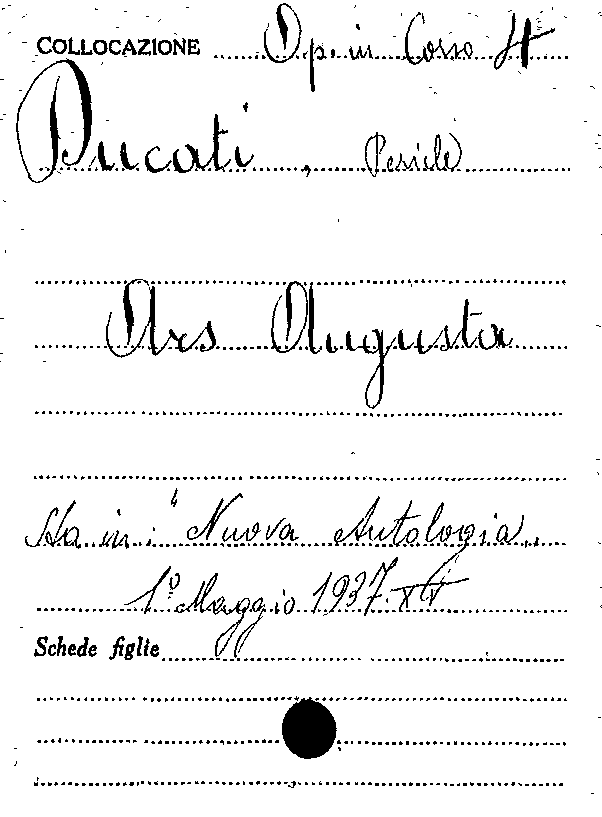 COLLOCAZIONE Op. in Corso
Ducati, (Pericle)
Ars Augusta
Sta in: "Nuova Antologia,
1º Maggio 1937. XV
Schede figlie